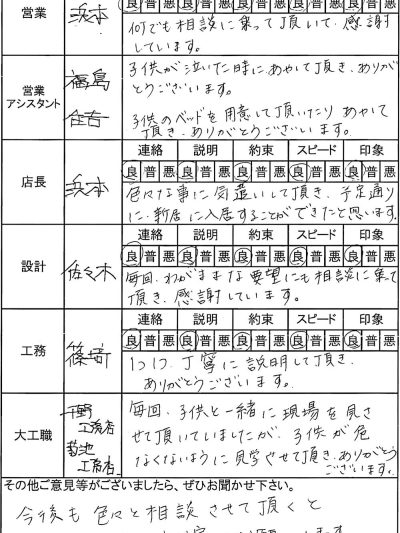 営業 浜本 良 普 悪 良 普 悪 良 普 悪 良 普 悪 良 普 悪
何でも相談に乗って頂いて、感謝
しています。
営業
アシスタント
福島
住吉
子供が泣いた時に、あやして頂き、ありが
とうございます。
子供のベッドを用意して頂いたり あやして
頂き、ありがとうございます。
連絡 説明 約束 スピード 印象
店長 浜本 良 普 悪 良 普 悪 良 普 悪 良 普 悪 良 普 悪
色々な事に気遣いして頂き、予定通り
に、新居に入居することができたと思います。
連絡 説明 約束 スピード 印象
設計 佐々木 良 普 悪 良 普 悪 良 普 悪 良 普 悪 良 普 悪
毎回、わがままな要望にも相談に乗って
頂き、感謝しています。
連絡 説明 約束 スピード 印象
工務 篠﨑 良 普 悪 良 普 悪 良 普 悪 良 普 悪 良 普 悪
1つ1つ、丁寧に説明して頂き、
ありがとうございます。
大工職
工務店
菊池
工務店
毎回、子供と一緒に現場を見さ
せて頂いていましたが、子供が危
なくないように見学させて頂き、ありがとう
ございます。
その他ご意見等がございましたら、ぜひお聞かせ下さい。
今後も色々と相談させて頂くと